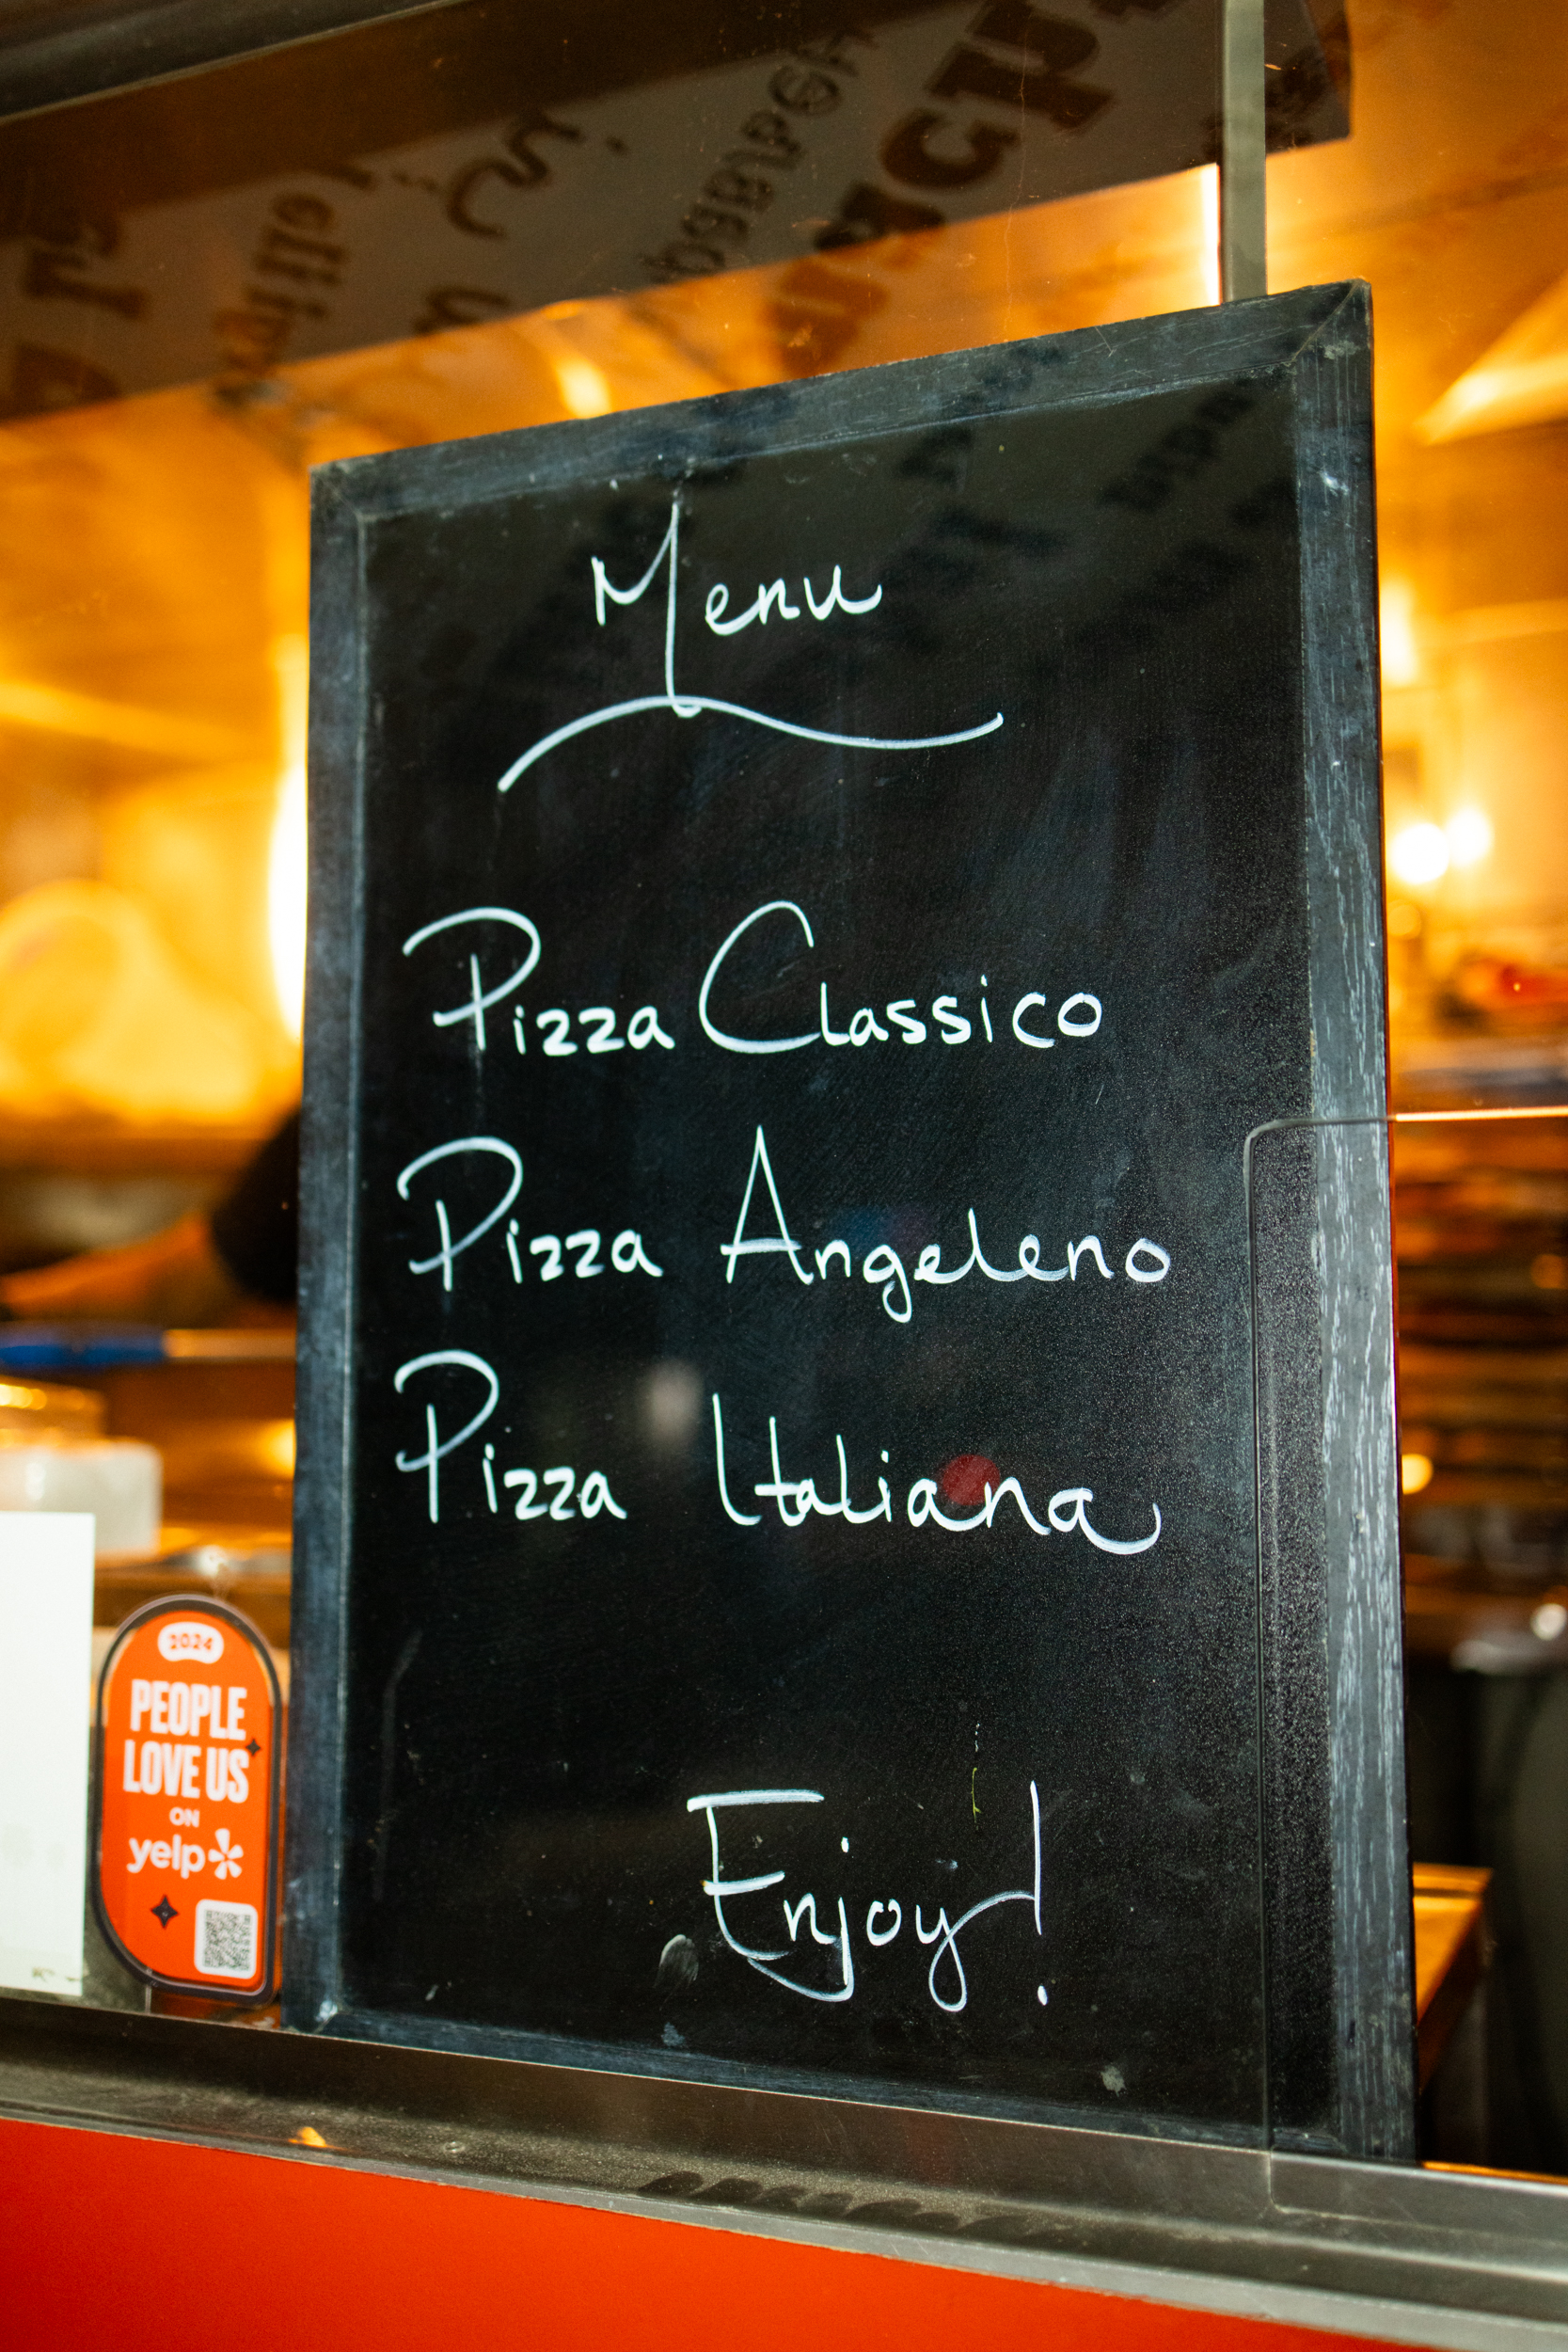 Menu
Pizza Classico
Pizza Angeleno
Pizza Italiana
Enjoy!
2024
PEOPLE
LOVE US
ON
yelp